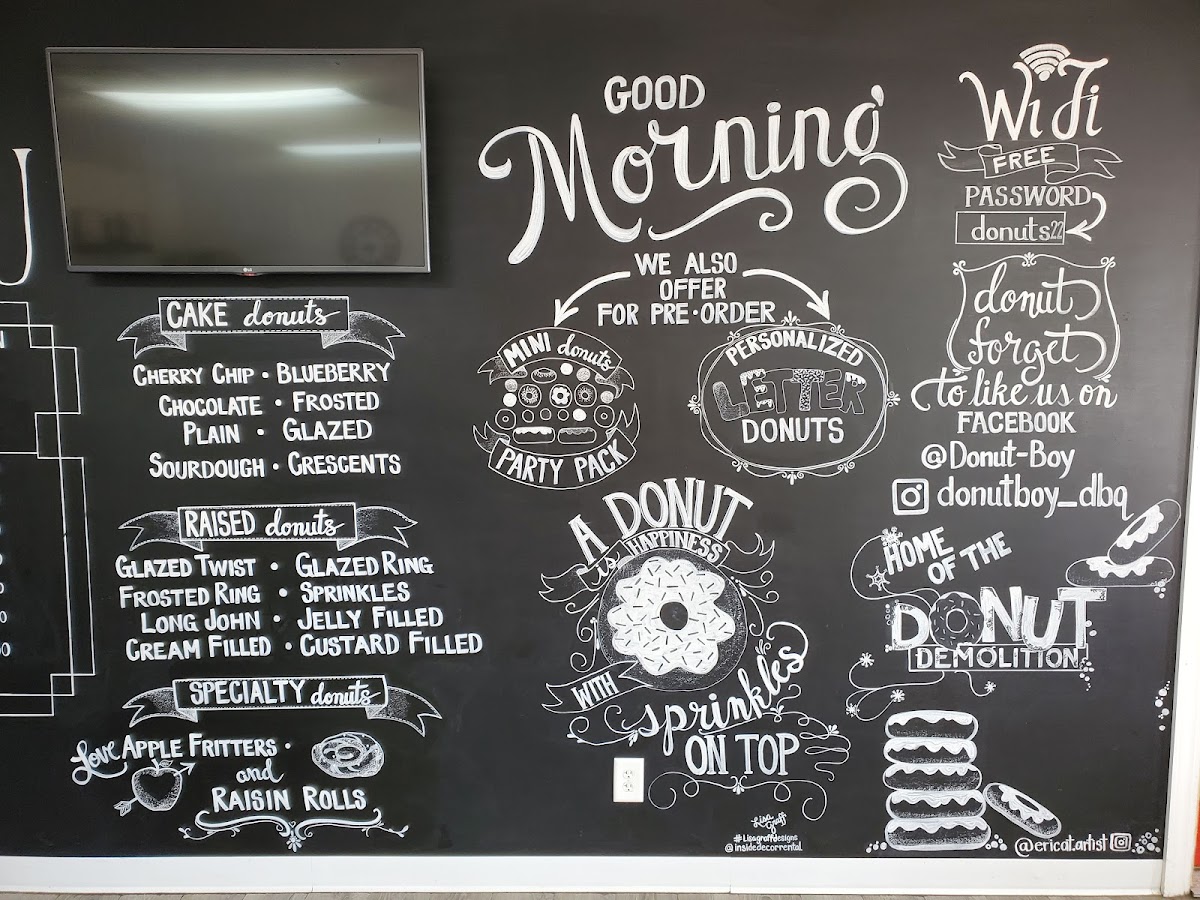 LG
CAKE donuts
CHERRY CHIP • BLUEBERRY
CHOCOLATE • FROSTED
PLAIN • GLAZED
SOURDOUGH • CRESCENTS
RAISED donuts
GLAZED TWIST • GLAZED RING
FROSTED RING • SPRINKLES
LONG JOHN • JELLY FILLED
CREAM FILLED • CUSTARD FILLED
SPECIALTY donuts
Love APPLE FRITTERS •
and
RAISIN ROLLS
GOOD
Morning
WE ALSO
OFFER
FOR PRE•ORDER
MINI donuts
PARTY PACK
PERSONALIZED
LETTER
DONUTS
A DONUT
is HAPPINESS
WITH
sprinkles
ON TOP
Lisa
Graff
#Lisagraffdesigns
@insidedecorrental
WiFi
FREE
PASSWORD
donuts22
donut
forget
to like us on
FACEBOOK
@Donut-Boy
donutboy_dbq
HOME
OF THE
DONUT
DEMOLITION
@ericat.artist